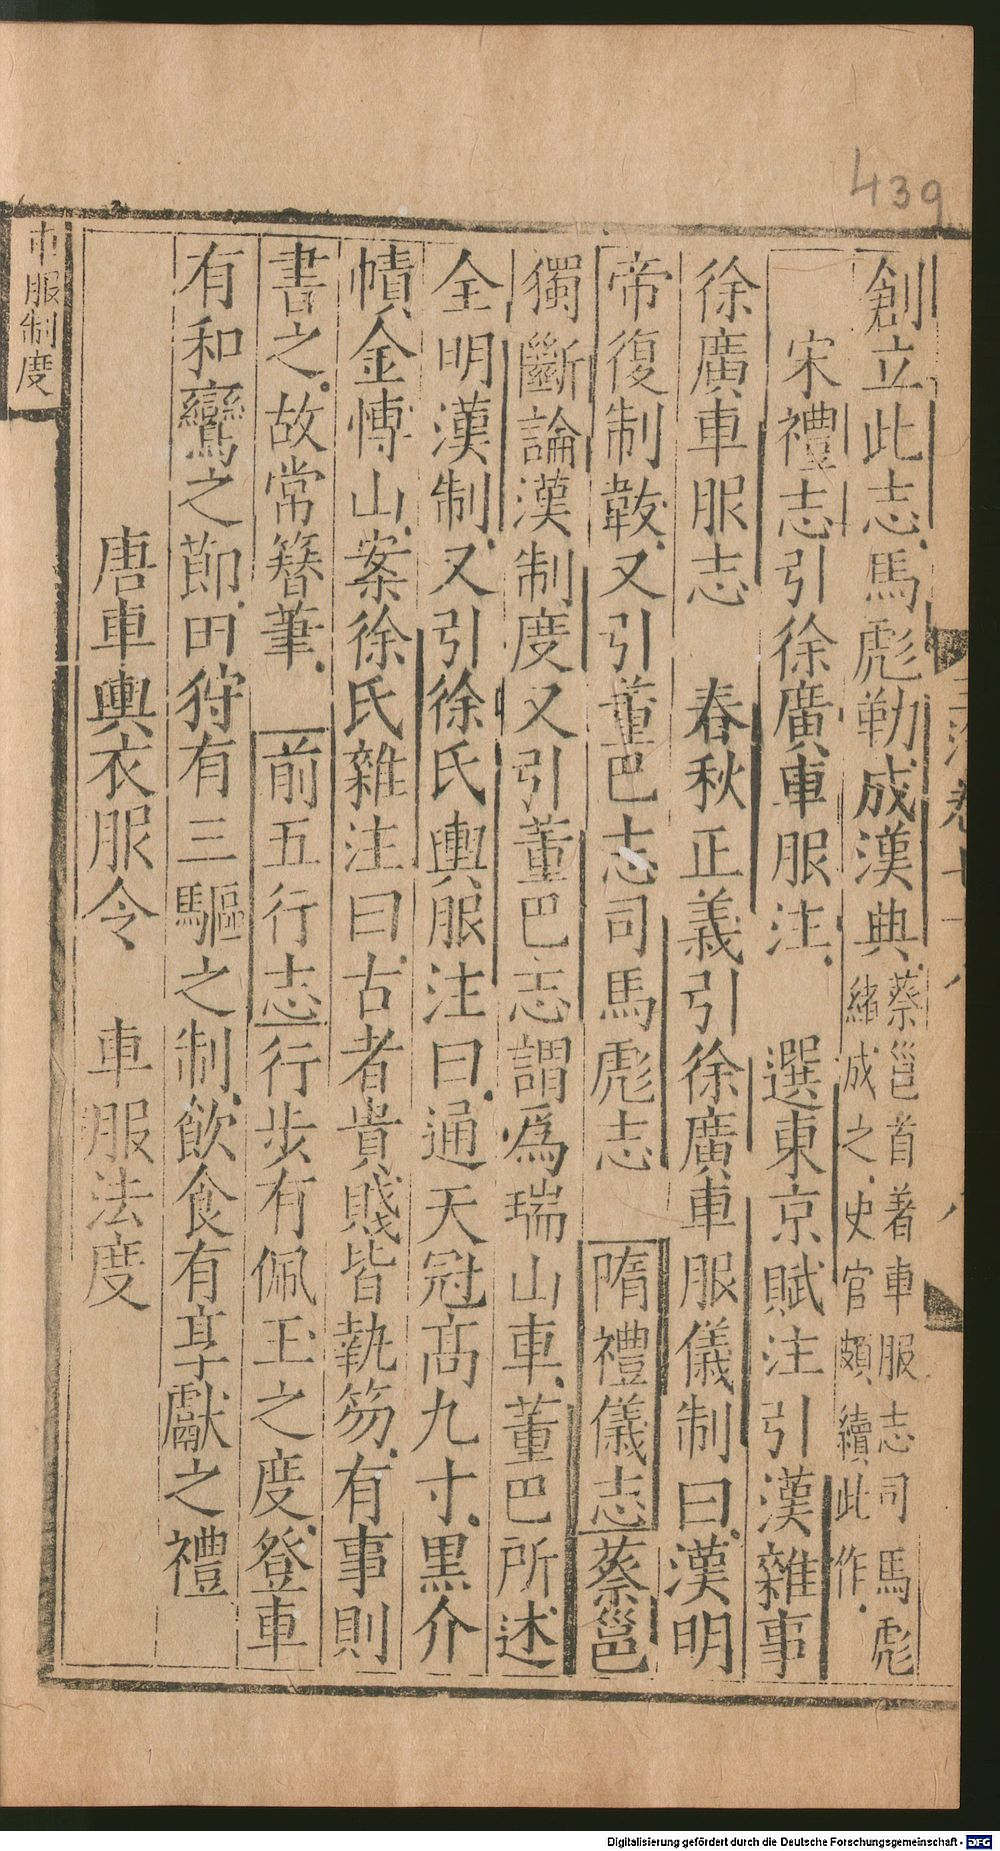 439
創立此志馬彪勒成漢典蔡邕首著車服志司馬彪
緒成之史官頗續此作
宋禮志引徐廣車服注 選東京賦注引漢雜事
徐廣車服志 春秋正義引徐廣車服儀制曰漢明
帝復制韍又引董巴志司馬彪志 隋禮儀志蔡邕
獨斷論漢制度又引董巴志謂爲瑞山車董巴所述
全明漢制又引徐氏輿服注曰通天冠高九寸黑介
幘金愽山案徐氏雜注曰古者貴賤皆執笏有事則
書之故常簪筆 前五行志行步有佩玉之度登車
有和鸞之節田狩有三驅之制飲食有享獻之禮
唐車輿衣服令 車服法度
車服制度
Digitalisierung gefördert durch die Deutsche Forschungsgemeinschaft - DFG